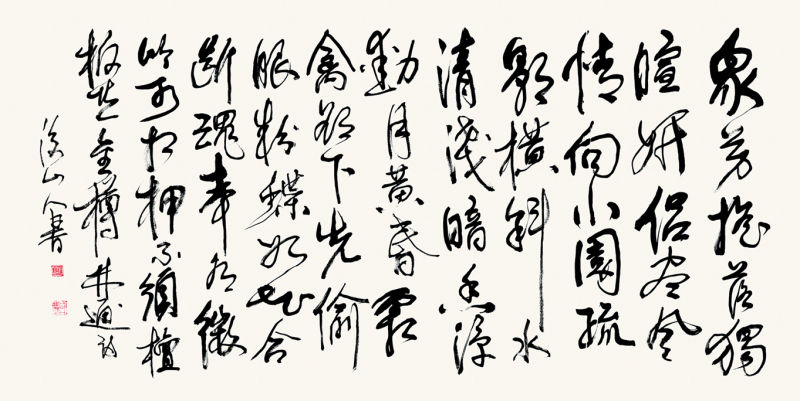 眾芳搖落獨
暄妍佔尽风
情向小園疏
影橫斜水
清淺暗香浮
動月黃昏霜
禽欲下先偷
眼粉蝶如知合
斷魂幸有微
吟可相狎不須檀
板共金樽 林逋詩
山人書